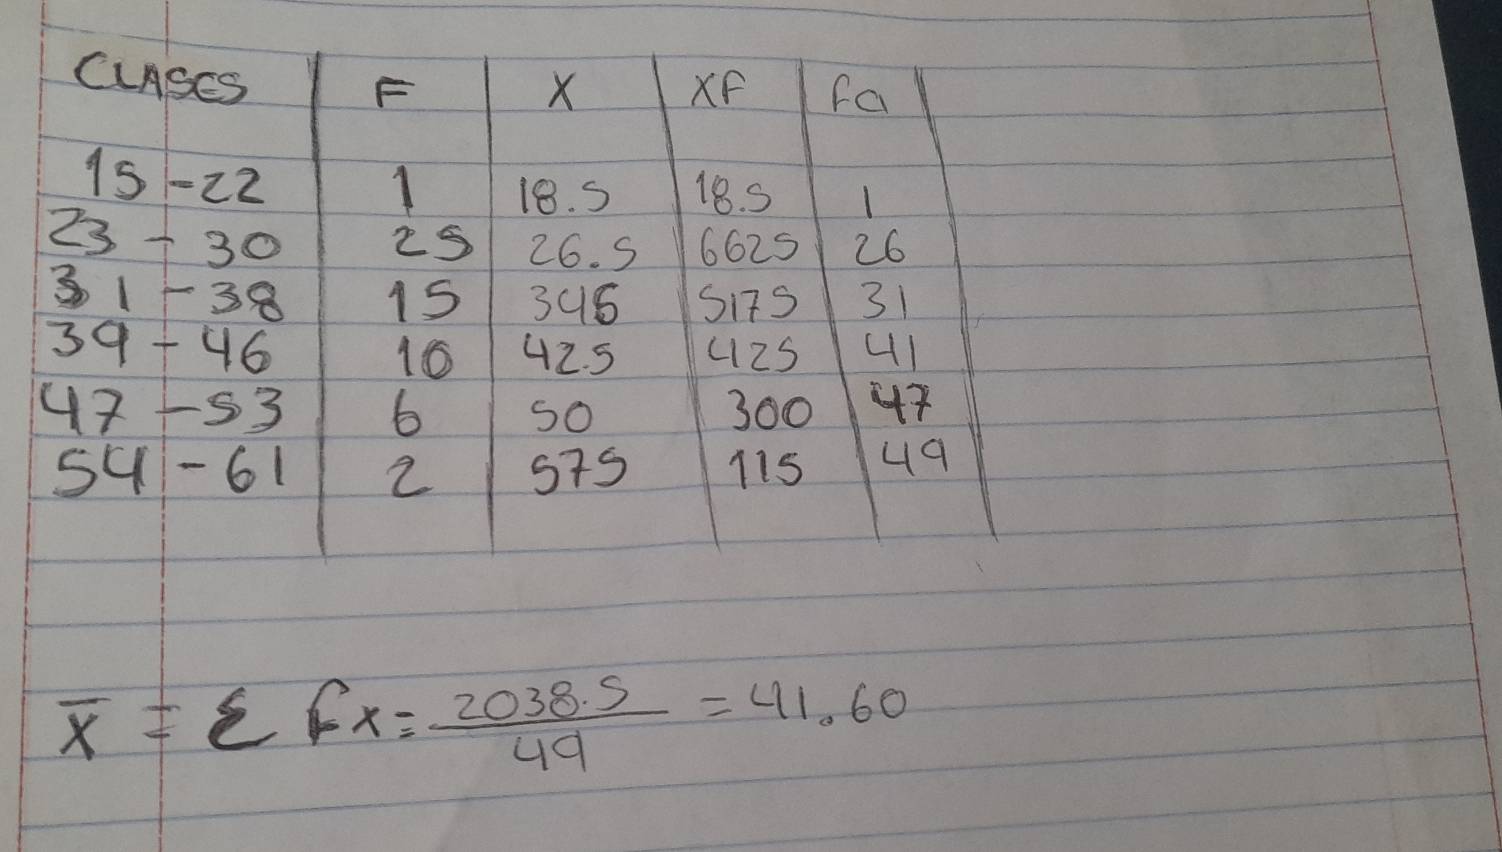 CLASES F X XF fa
15-22 1 18.5 18.5 1
23-30 25 26.5 6625 26
31-38 15 345 5175 31
39-46 10 42.5 425 41
47-53 6 50 300 47
54-61 2 575 115 49
x̄ = Σ fx = 2038.5 = 41.60
49